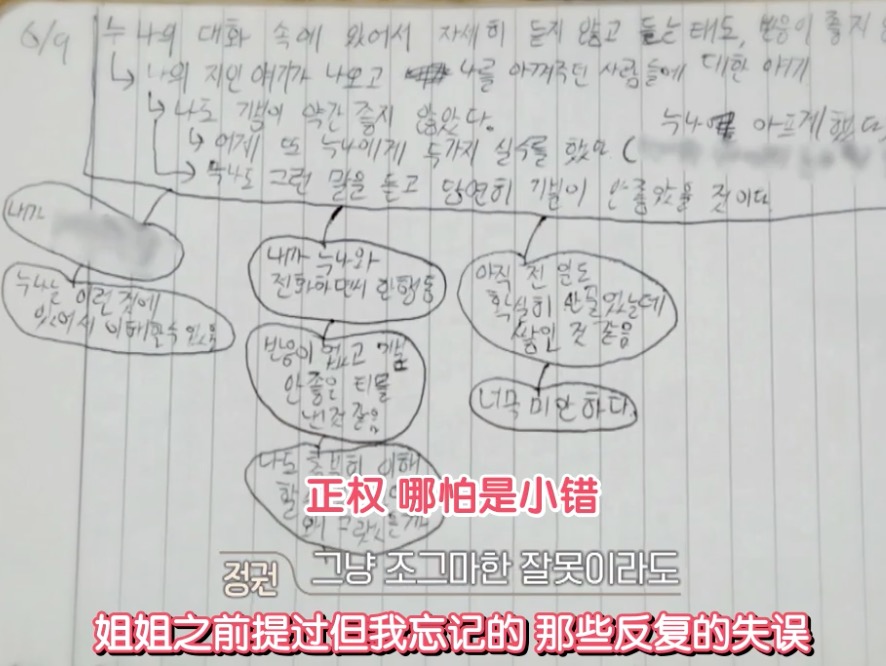 6/9
누나의 대화 속에 있어서 자세히 듣지 않고 듣는 태도, 반응이 좋지
↳ 나의 지인 얘기가 나오고 나를 아껴주던 사람들에 대한 얘기
↳ 나도 기분이 약간 좋지 않았다.
누나 아프게 했다
↳ 어제 또 누나에게 두가지 실수를 했고 (
→ 누나도 그런 말을 듣고 당연히 기분이 안좋았을 것이다
내가
누나는 이런 점에
있어서 이해할수 있음
내가 누나와
전화하면서 한행동
반응이 없고 기분
안 좋은 티를
낸것 같음
나도 충분히 이해
할
왜 그랬는지
아직 전 일도
확실히 안풀렸는데
쌓인 것 같음
너무 미안하다
正权 哪怕是小错
정권
그냥 조그마한 잘못이라도
姐姐之前提过但我忘记的 那些反复的失误